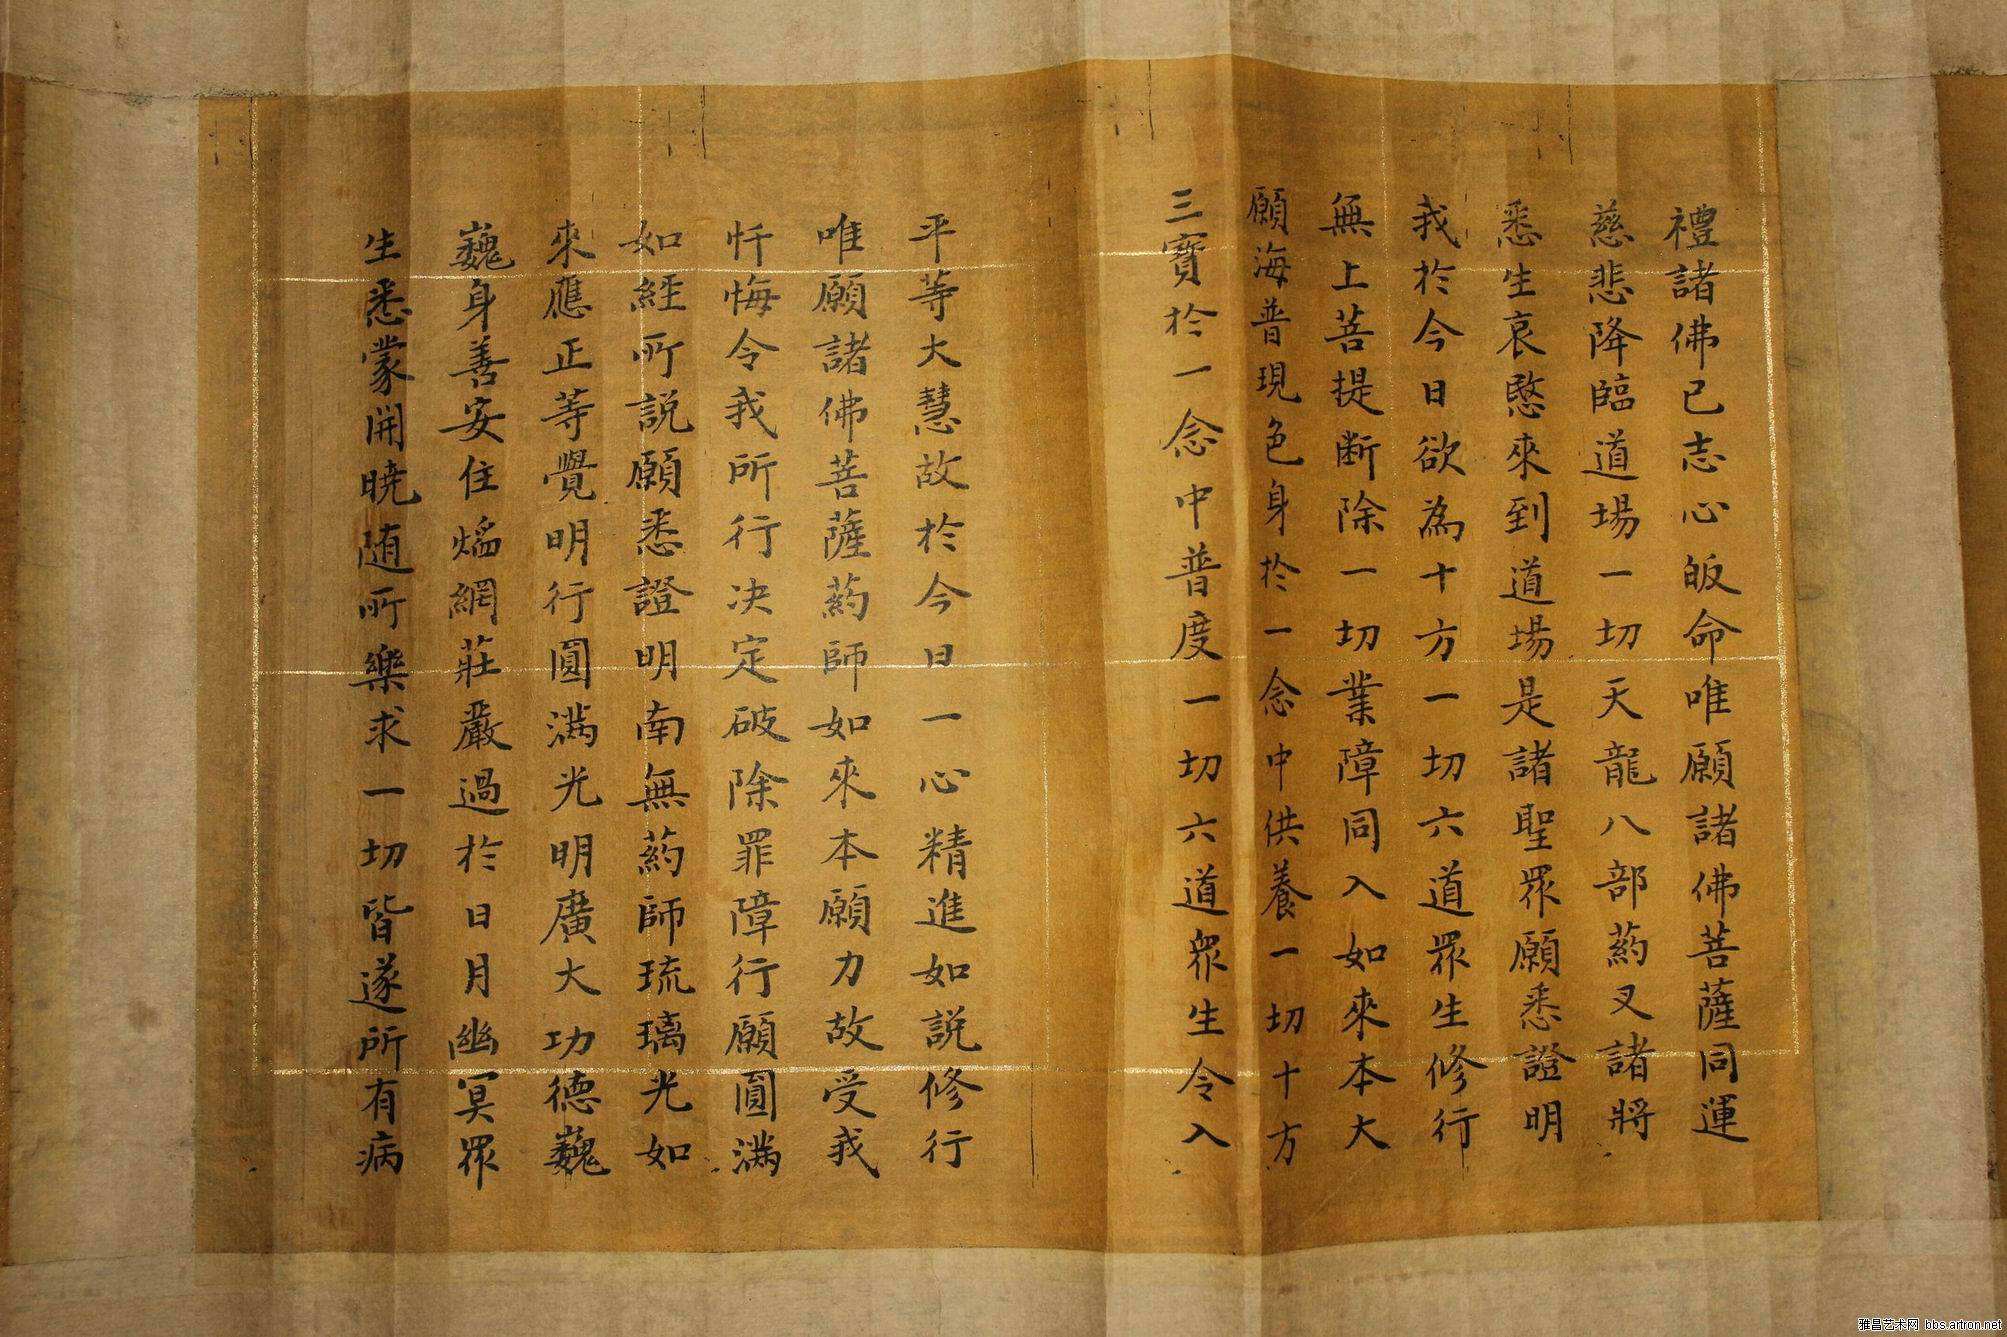 禮諸佛已志心皈命唯願諸佛菩薩同運
慈悲降臨道場一切天龍八部葯叉諸將
悉生哀愍來到道場是諸聖眾願悉證明
我於今日欲為十方一切六道眾生修行
無上菩提斷除一切業障同入如來本大
願海普現色身於一念中供養一切十方
三寶於一念中普度一切六道眾生令入
平等大慧故於今日一心精進如說修行
唯願諸佛菩薩葯師如來本願力故受我
忏悔令我所行决定破除罪障行願圓滿
如經所說願悉證明南無葯師琉璃光如
來應正等覺明行圓滿光明廣大功德巍
巍身善安住焰網莊嚴過於日月幽冥眾
生悉蒙開曉随所樂求一切皆遂所有病
雅昌艺术网 bbs.artron.net